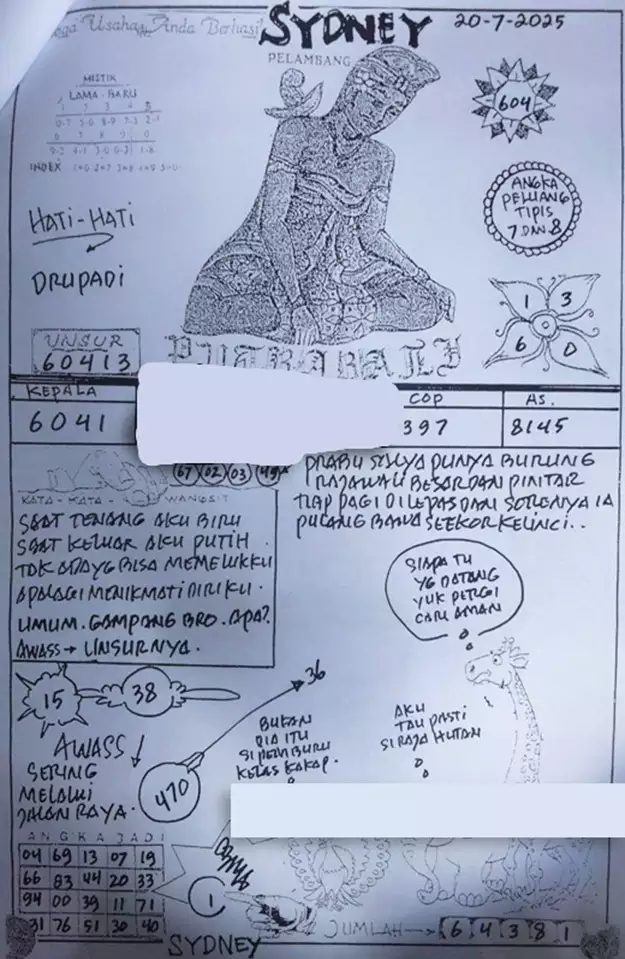 Usaha Anda Berhasil
SYDNEY
20-7-2025
PELAMBANG
MISTIK
LAMA - BARU
1 2 3 4 5
6 7 8 9 0
INDEX
604
ANGKA
PELUANG
TIPIS
7 DAN 8
HATI-HATI
DRUPADI
1 3
6 0
UNSUR
60413
KEPALA
COP
AS.
6041
397
8145
67 02 03 49
KATA - KATA WANGSIT
SAAT TENANG AKU BIRU
SAAT KELUAR AKU PUTIH
TDK ADA YG BISA MEMELUKKU
APALAGI MENIKMATI DIRIKU.
UMUM. GAMPANG BRO. APA?
AWASS → UNSURNYA.
PRABU SALYA PUNYA BURUNG
RAJAWALI BESAR DAN PINTAR
TIAP PAGI DILEPAS DAN SORENYA IA
PULANG BAWA SEEKOR KELINCI..
SIAPA TU
YG DATANG
YUK PERGI
CARI AMAN
15
38
36
BUKAN
DIA ITU
SI PEMBURU
KELAS KAKAP.
AKU
TAU PASTI
SI RAJA HUTAN
AWASS
SERING
MELALUI
JALAN RAYA.
470
ANGKA JADI
04 69 13 07 19
66 83 44 20 33
94 00 39 11 71
31 76 51 30 40
1
JUMLAH → 6 4 3 8 1
SYDNEY